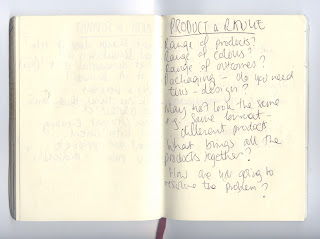 PRODUCT a RANGE
Range of products?
Range of colours?
Range of outcomes?
Packaging - do you need
this - design?
May not look the same
e.g. same format -
different products
What brings all the
products together?
How are you going to
resolve the problem?